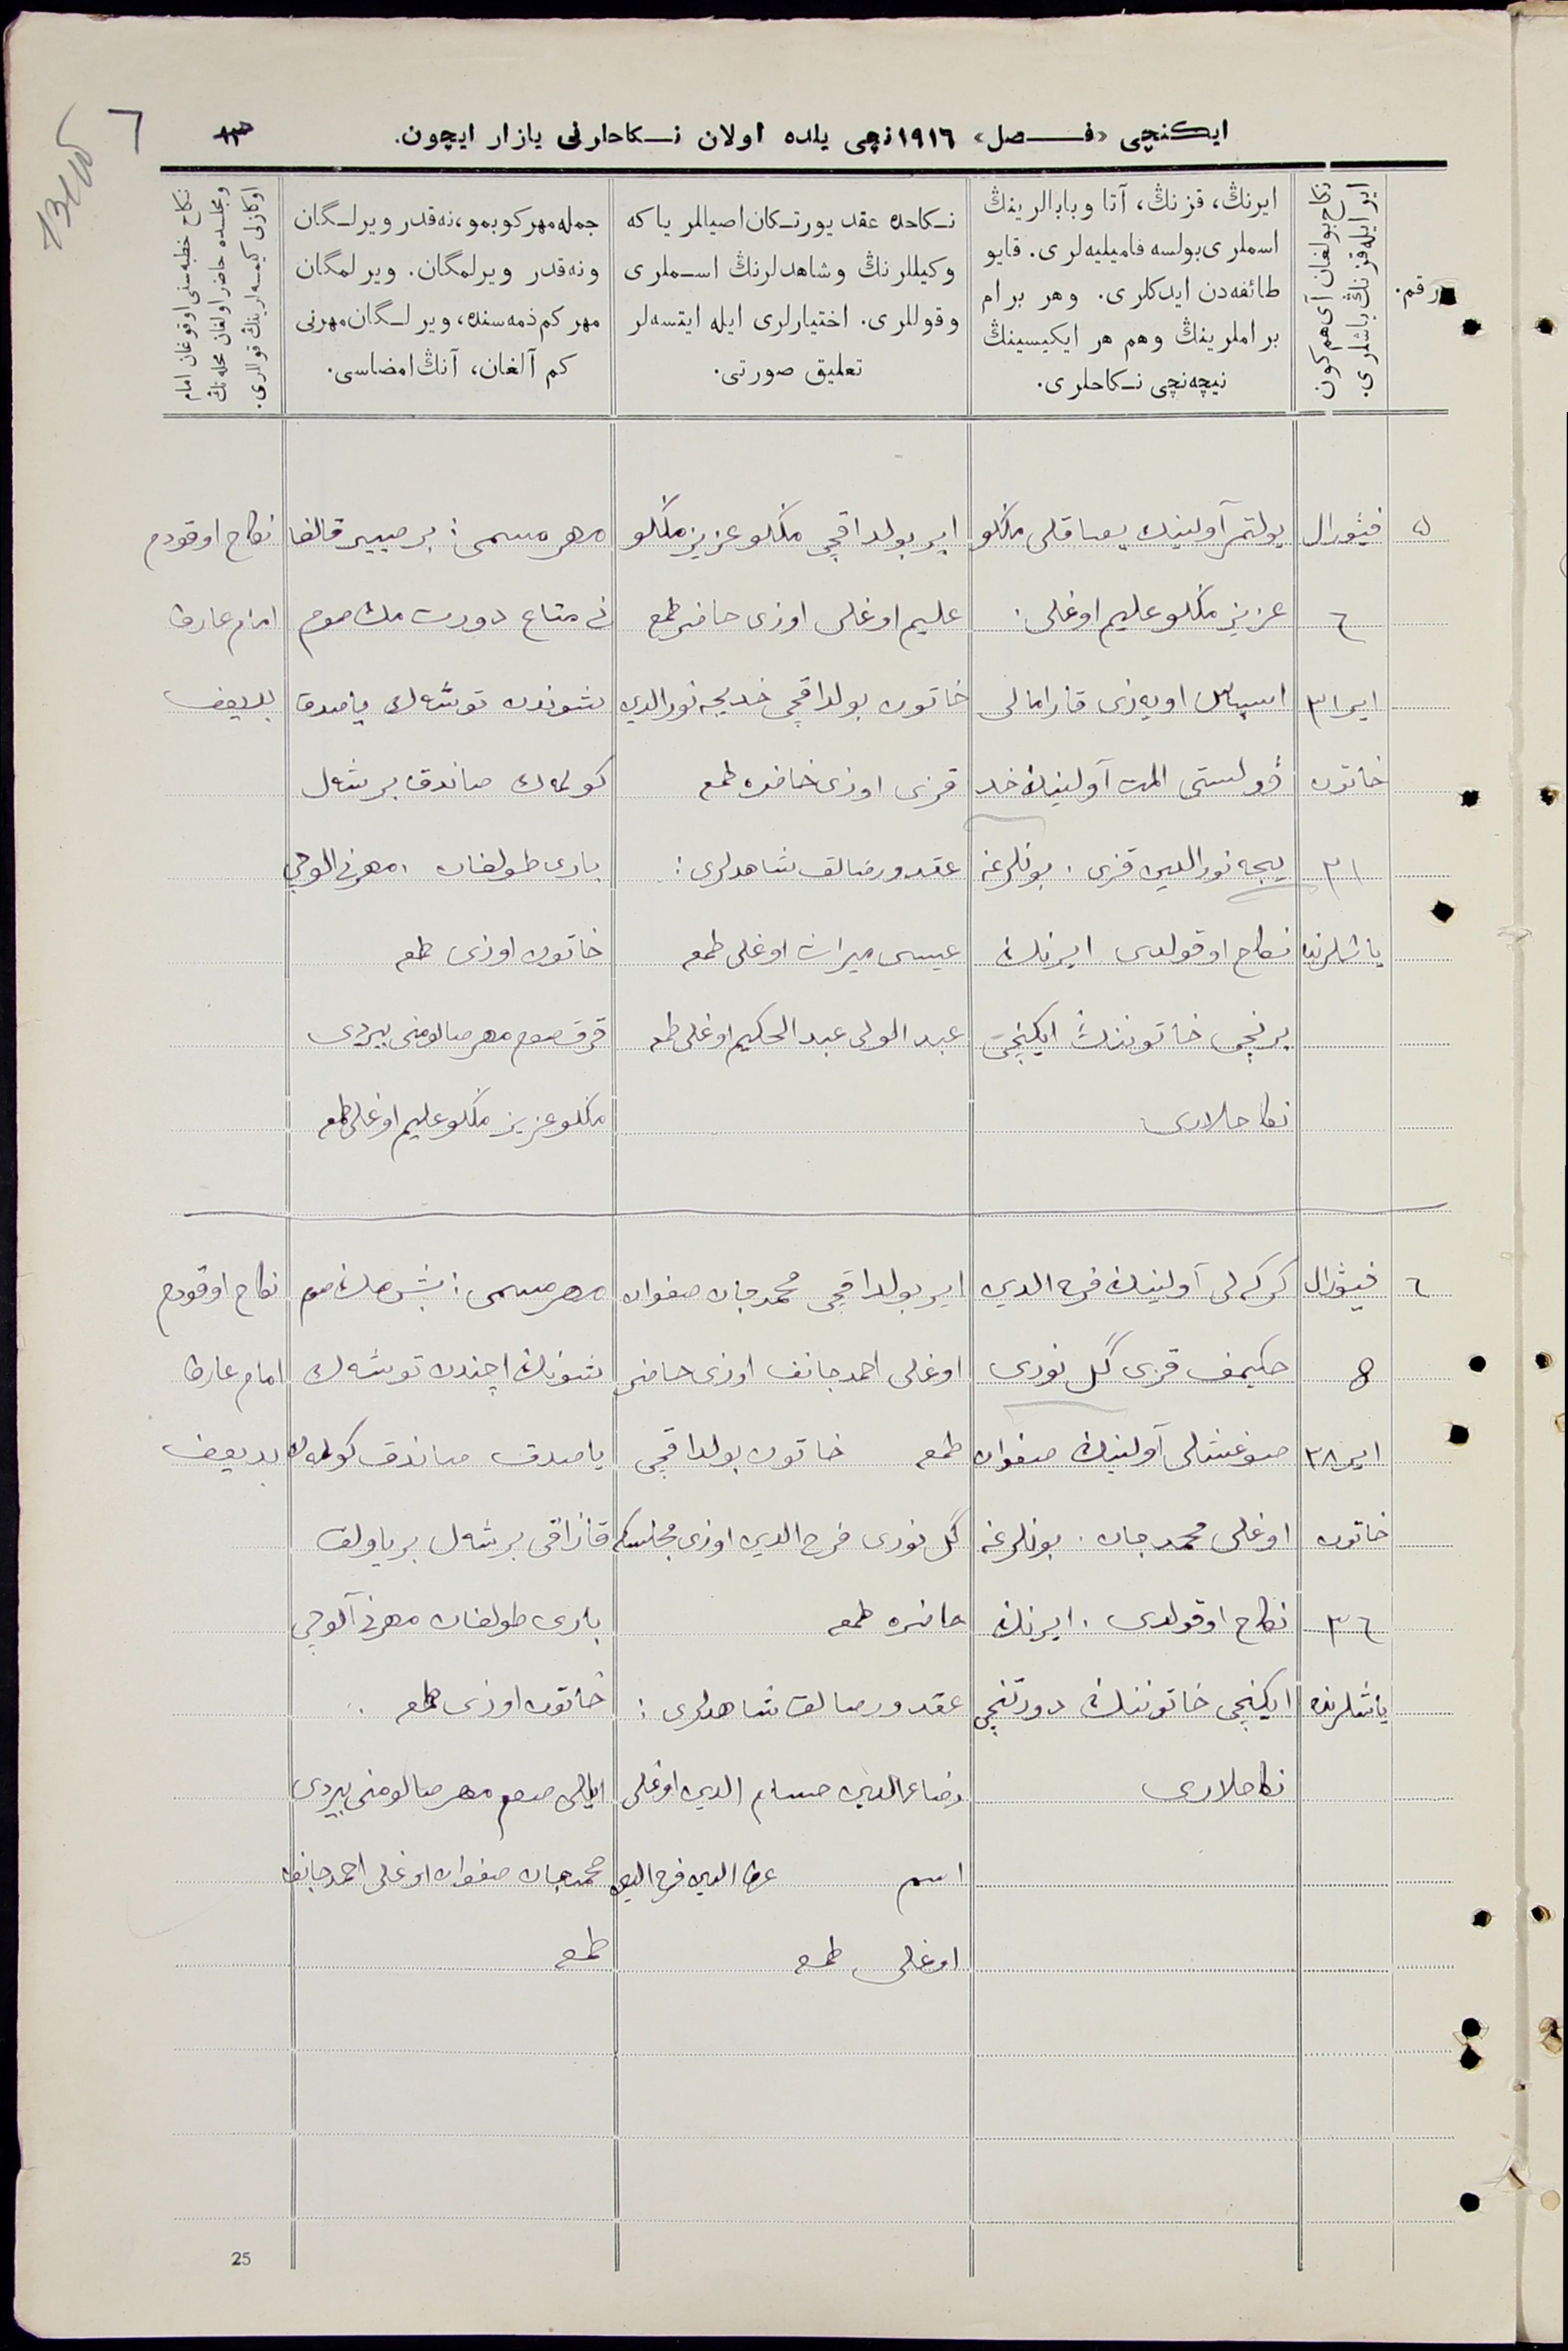 ایکنچی «فصل» ١٩١٦ نچی یلده اولان نکاحلرنی یازار ایچون.
١٣
رقم.
ایر ایله قزنڭ یاشلری.
نکاح بولغان آی هم کون
ایرنڭ، قزنڭ، آتا وبابالرینڭ
اسملری بولسه فامیلیه‌لری. قایو
طائفه‌دن ایدکلری. وهر برام
براملرینڭ وهم هر ایکیسینڭ
نیچه‌نچی نکاحلری.
نکاحده عقد یورتکان اصیللر یاکه
وکیللرنڭ وشاهدلرنڭ اسملری
وقوللری. اختیارلری ایله ایتسه‌لر
تعلیق صورتی.
جمله مهر کوبمو، نه‌قدر ویرلگان
ونه‌قدر ویرلمگان. ویرلمگان
مهر کم ذمه‌سنده، ویرلگان مهرنی
کم آلغان، آنڭ امضاسی.
نکاح خطبه‌سنی اوقوغان امام
ومجلسده حاضر اولغان محله‌نڭ
اوکازلی کیمسه‌لرینڭ قوللری.
٥
فیٶرال
٦
ایر ٣١
خاتون
٣١
یاشلرنده
یولتمر آولینڭ یصاقلی منکلو
عزیز منکلو علیم اوغلی.
اویه‌زی قارامالی
ۋولستی آولینڭ خد
یجه نورالدین قزی. بونلرغه
نکاح اوقولدی ایرنڭ
برنچی خاتوننڭ ایکینچی
نکاحلاری
ایر بولداقچی منکلو عزیز منکلو
علیم اوغلی اوزی حاضر طمع
خاتون بولداقچی خدیجه نورالدین
قزی اوزی حاضره طمع
عقد ورضالق شاهدلری:
عیسی میراث اوغلی طمع
عبد الولی عبد الحکیم اوغلی طمع
مهر مسمی: بر
نی متاع دورت مڭ صوم
شوندن توشه‌ك یاصدق
کولمه‌ك صاندق بر شه‌ل
باری طولغان. مهرنی الوچی
خاتون اوزی طمع
قرق صوم مهر صالومنی بیردی
منکلو عزیز منکلو علیم اوغلی طمع
نکاح اوقودم
امام عارف
بدیعف
٦
فیٶرال
٨
ایر ٣٨
خاتون
٣٦
یاشلرنده
کرکه‌لی آولینڭ فرح الدین
حکیمف قزی گل نوری
آولینڭ صفوان
اوغلی محمدجان. بونلرغه
نکاح اوقولدی. ایرنڭ
ایکینچی خاتوننڭ دورتنچی
نکاحلاری
ایر بولداقچی محمدجان صفوان
اوغلی احمدجانف اوزی حاضر
طمع خاتون بولداقچی
گل نوری فرح الدین اوزی مجلسده
حاضره طمع
عقد ورضالق شاهدلری:
رضاءالدین حسام الدین اوغلی
اسم فرح الدین
اوغلی طمع
مهر مسمی: بش مڭ صوم
شونڭ اچندن توشه‌ك
یاصدق صاندق کولمه‌ك
بر شه‌ل بر یاولق
باری طولغان مهرنی آلوچی
خاتون اوزی طمع.
ایللی صوم مهر صالومنی بیردی
محمدجان صفوان اوغلی احمدجانف
طمع
نکاح اوقودم
امام عارف
بدیعف
25